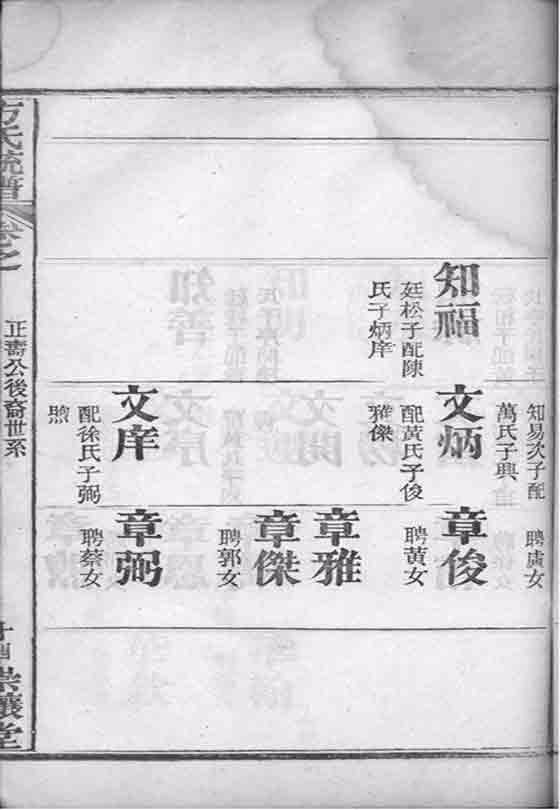 知福
廷松子配陳
氏子炳庠
知易次子配
萬氏子興
文炳
配黃氏子俊
雅傑
文庠
配徐氏子弼
煦
聘女
章俊
聘黃女
章雅
章傑
聘郭女
章弼
聘蔡女
方氏統譜
卷之
正壽公後裔世系
十四
崇讓堂